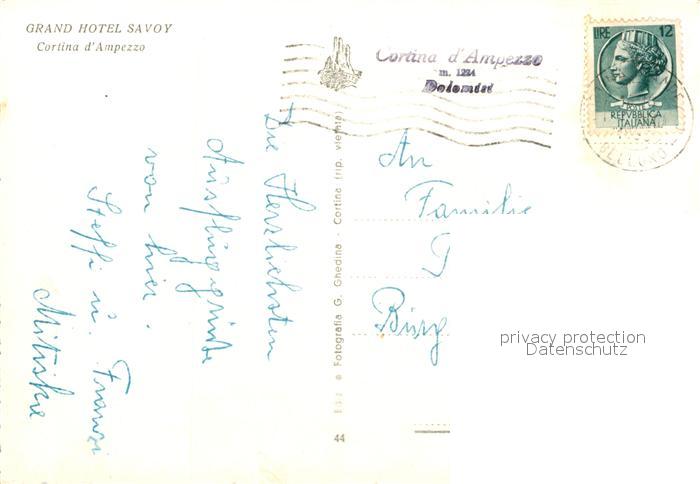 GRAND HOTEL SAVOY
Cortina d'Ampezzo
Cortina d'Ampezzo
m. 1224
Dolomiti
LIRE 12
REPVBBLICA
ITALIANA
Die Herzlichsten
Ausflugsgrüße
von hier.
Steffi u. Franzi
An
Familie
Fotografia G. Ghedina - Cortina (rip. vietata)
44
privacy protection
Datenschutz